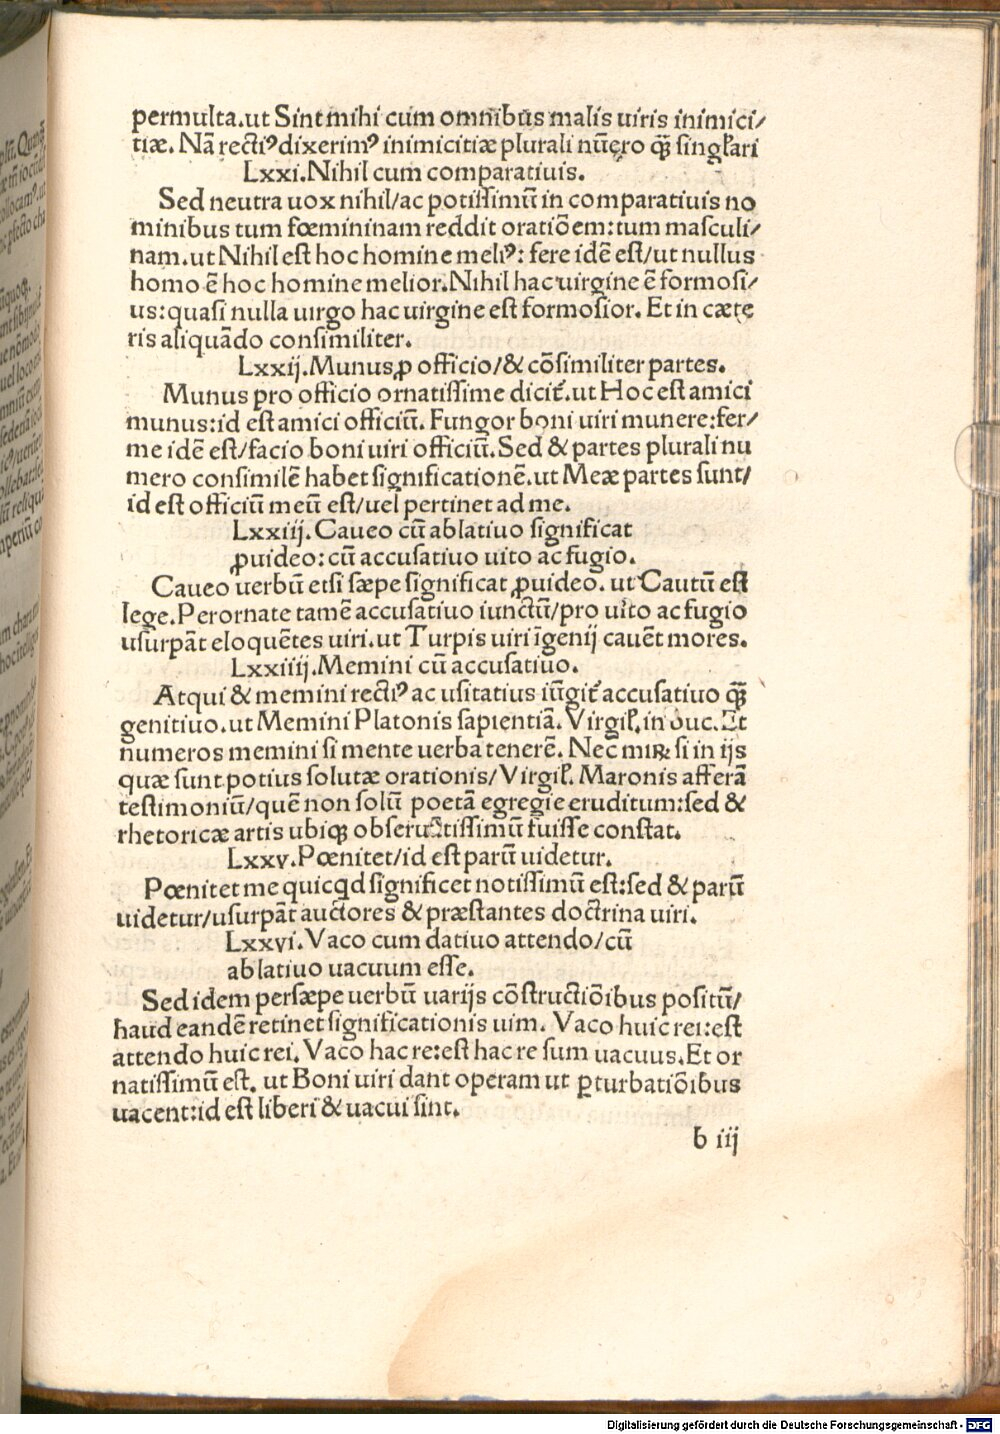 permulta.ut Sint mihi cum omnibus malis uiris inimici/
tiæ. Nā rectiꝰ dixerimꝰ inimicitiæ plurali nūero q̄ꝫ singl̄ari
Lxxi.Nihil cum comparatiuis.
Sed neutra uox nihil/ac potissimū in comparatiuis no
minibus tum fœmininam reddit oratiōem:tum masculi/
nam.ut Nihil est hoc homine meliꝰ: fere idē est/ut nullus
homo ē hoc homine melior.Nihil hac uirgine ē formosi/
us:quasi nulla uirgo hac uirgine est formosior. Et in cæte
ris aliquādo consimiliter.
Lxxij.Munus ꝓ officio/& cōsimiliter partes.
Munus pro officio ornatissime dicit̄.ut Hoc est amici
munus:id est amici officiū. Fungor boni uiri munere:fer/
me idē est/facio boni uiri officiū. Sed & partes plurali nu
mero consimilē habet significationē.ut Meæ partes sunt/
id est officiū meū est/uel pertinet ad me.
Lxxiij. Caueo cū ablatiuo significat
ꝓuideo:cū accusatiuo uito ac fugio.
Caueo uerbū etsi sæpe significat ꝓuideo. ut Cautū est
lege.Perornate tamē accusatiuo iunctū/pro uito ac fugio
usurpāt eloquētes uiri.ut Turpis uiri īgenij cauēt mores.
Lxxiiij.Memini cū accusatiuo.
Atqui & memini rectiꝰ ac usitatius iūgit̄ accusatiuo q̄ꝫ
genitiuo.ut Memini Platonis sapientiā. Virgil̄.in buc.Et
numeros memini si mente uerba tenerē. Nec miꝝ si in ijs
quæ sunt potius solutæ orationis/Virgil̄. Maronis afferā
testimoniū/quē non solū poetā egregie eruditum:sed &
rhetoricæ artis ubiqꝫ obseruātissimū fuisse constat.
Lxxv.Pœnitet/id est parū uidetur.
Pœnitet me quicqd significet notissimū est:sed & parū
uidetur/usurpāt auctores & præstantes doctrina uiri.
Lxxvi.Vaco cum datiuo attendo/cū
ablatiuo uacuum esse.
Sed idem persæpe uerbū uarijs cōstructiōibus positū/
haud eandē retinet significationis uim. Vaco huic rei:est
attendo huic rei. Vaco hac re:est hac re sum uacuus.Et or
natissimū est. ut Boni uiri dant operam ut ꝑturbatiōibus
uacent:id est liberi & uacui sint.
b iij
Digitalisierung gefördert durch die Deutsche Forschungsgemeinschaft - DFG